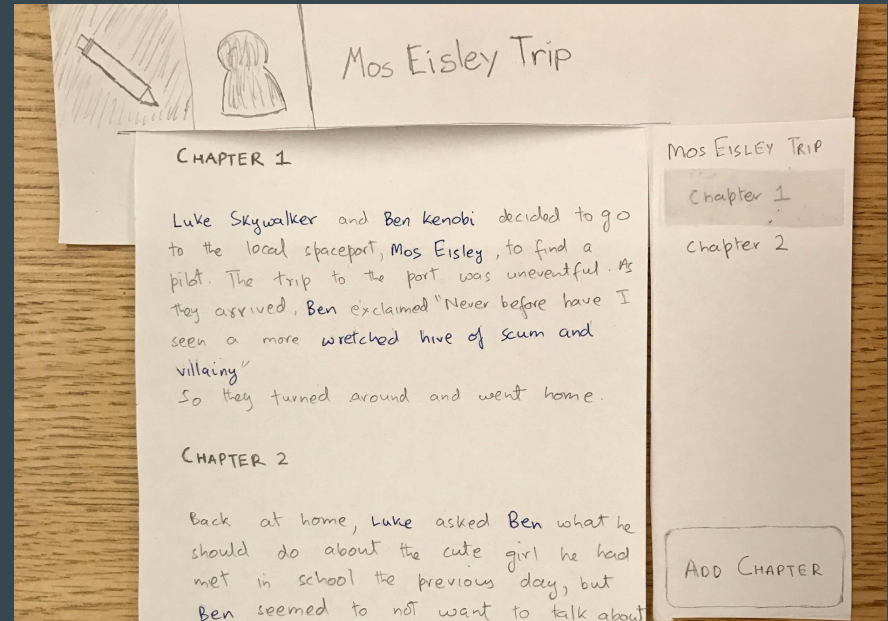 Mos Eisley Trip
CHAPTER 1
Luke Skywalker and Ben Kenobi decided to go
to the local spaceport, Mos Eisley, to find a
pilot. The trip to the port was uneventful. As
they arrived, Ben exclaimed "Never before have I
seen a more wretched hive of scum and
villainy"
So they turned around and went home.
CHAPTER 2
Back at home, Luke asked Ben what he
should do about the cute girl he had
met in school the previous day, but
Ben seemed to not want to talk about
MOS EISLEY TRIP
Chapter 1
Chapter 2
ADD CHAPTER